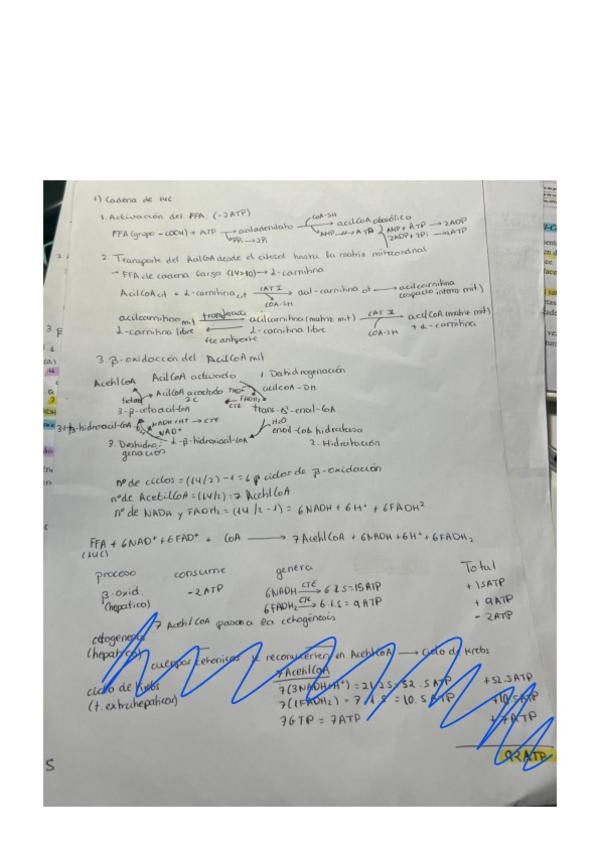 1) Cadena de 14C
1. Activación del FFA: (-2ATP)
FFA (grupo -COOH) + ATP → aciladenilato → acilCoA
PPi → 2Pi
COA-SH
2ADP + 2Pi → 2ATP
2. Transporte del AcilCoA desde el citosol hasta la matriz mitocondrial
- FFA de cadena larga (14>10) → L-carnitina
AcilCoA cit + L-carnitina cit CAT I → acil-carnitina cit → acilcarnitina
COA-SH (espacio interno mit)
acilcarnitina mit → acilcarnitina (matriz mit) CAT II → acilCoA (matriz mit)
L-carnitina libre ← L-carnitina libre COA-SH + L-carnitina
antiporte
3. β-oxidación del AcilCoA mit
AcetilCoA AcilCoA activado 1. Deshidrogenación
AcilCoA acortado 2C FAD+ acilCoA-DH
tiolasa CTE FADH2
3-β-cetoacil-CoA trans-Δ²-enoil-CoA
NADH+H+ → CTE H2O
NAD+ enoil-CoA hidratasa
3. Deshidrogenación L-β-hidroxiacil-CoA 2. Hidratación
nº de ciclos = (14/2) - 1 = 6 ciclos de β-oxidación
nº de AcetilCoA = (14/2) = 7 AcetilCoA
nº de NADH y FADH2 = (14/2-1) = 6NADH + 6H+ + 6FADH2
FFA + 6NAD+ + 6FAD+ + CoA → 7AcetilCoA + 6NADH + 6H+ + 6FADH2
(14C)
proceso consume genera Total
β-oxid. -2ATP 6NADH CTE → 6·2.5=15ATP +15ATP
(hepatico) 6FADH2 CTE → 6·1.5=9ATP + 9ATP
7 AcetilCoA pasan a la cetogénesis - 2ATP
cetogenesis
(hepatico) cuerpos cetonicos se reconvierten en AcetilCoA → Ciclo de Krebs
7AcetilCoA
ciclo de Krebs 7(3NADH+H+) = 21·2.5=52.5ATP +52.5ATP
(t. extrahepatico) 7(1FADH2) = 7·1.5=10.5ATP +10.5ATP
7GTP = 7ATP +7ATP
92ATP
S